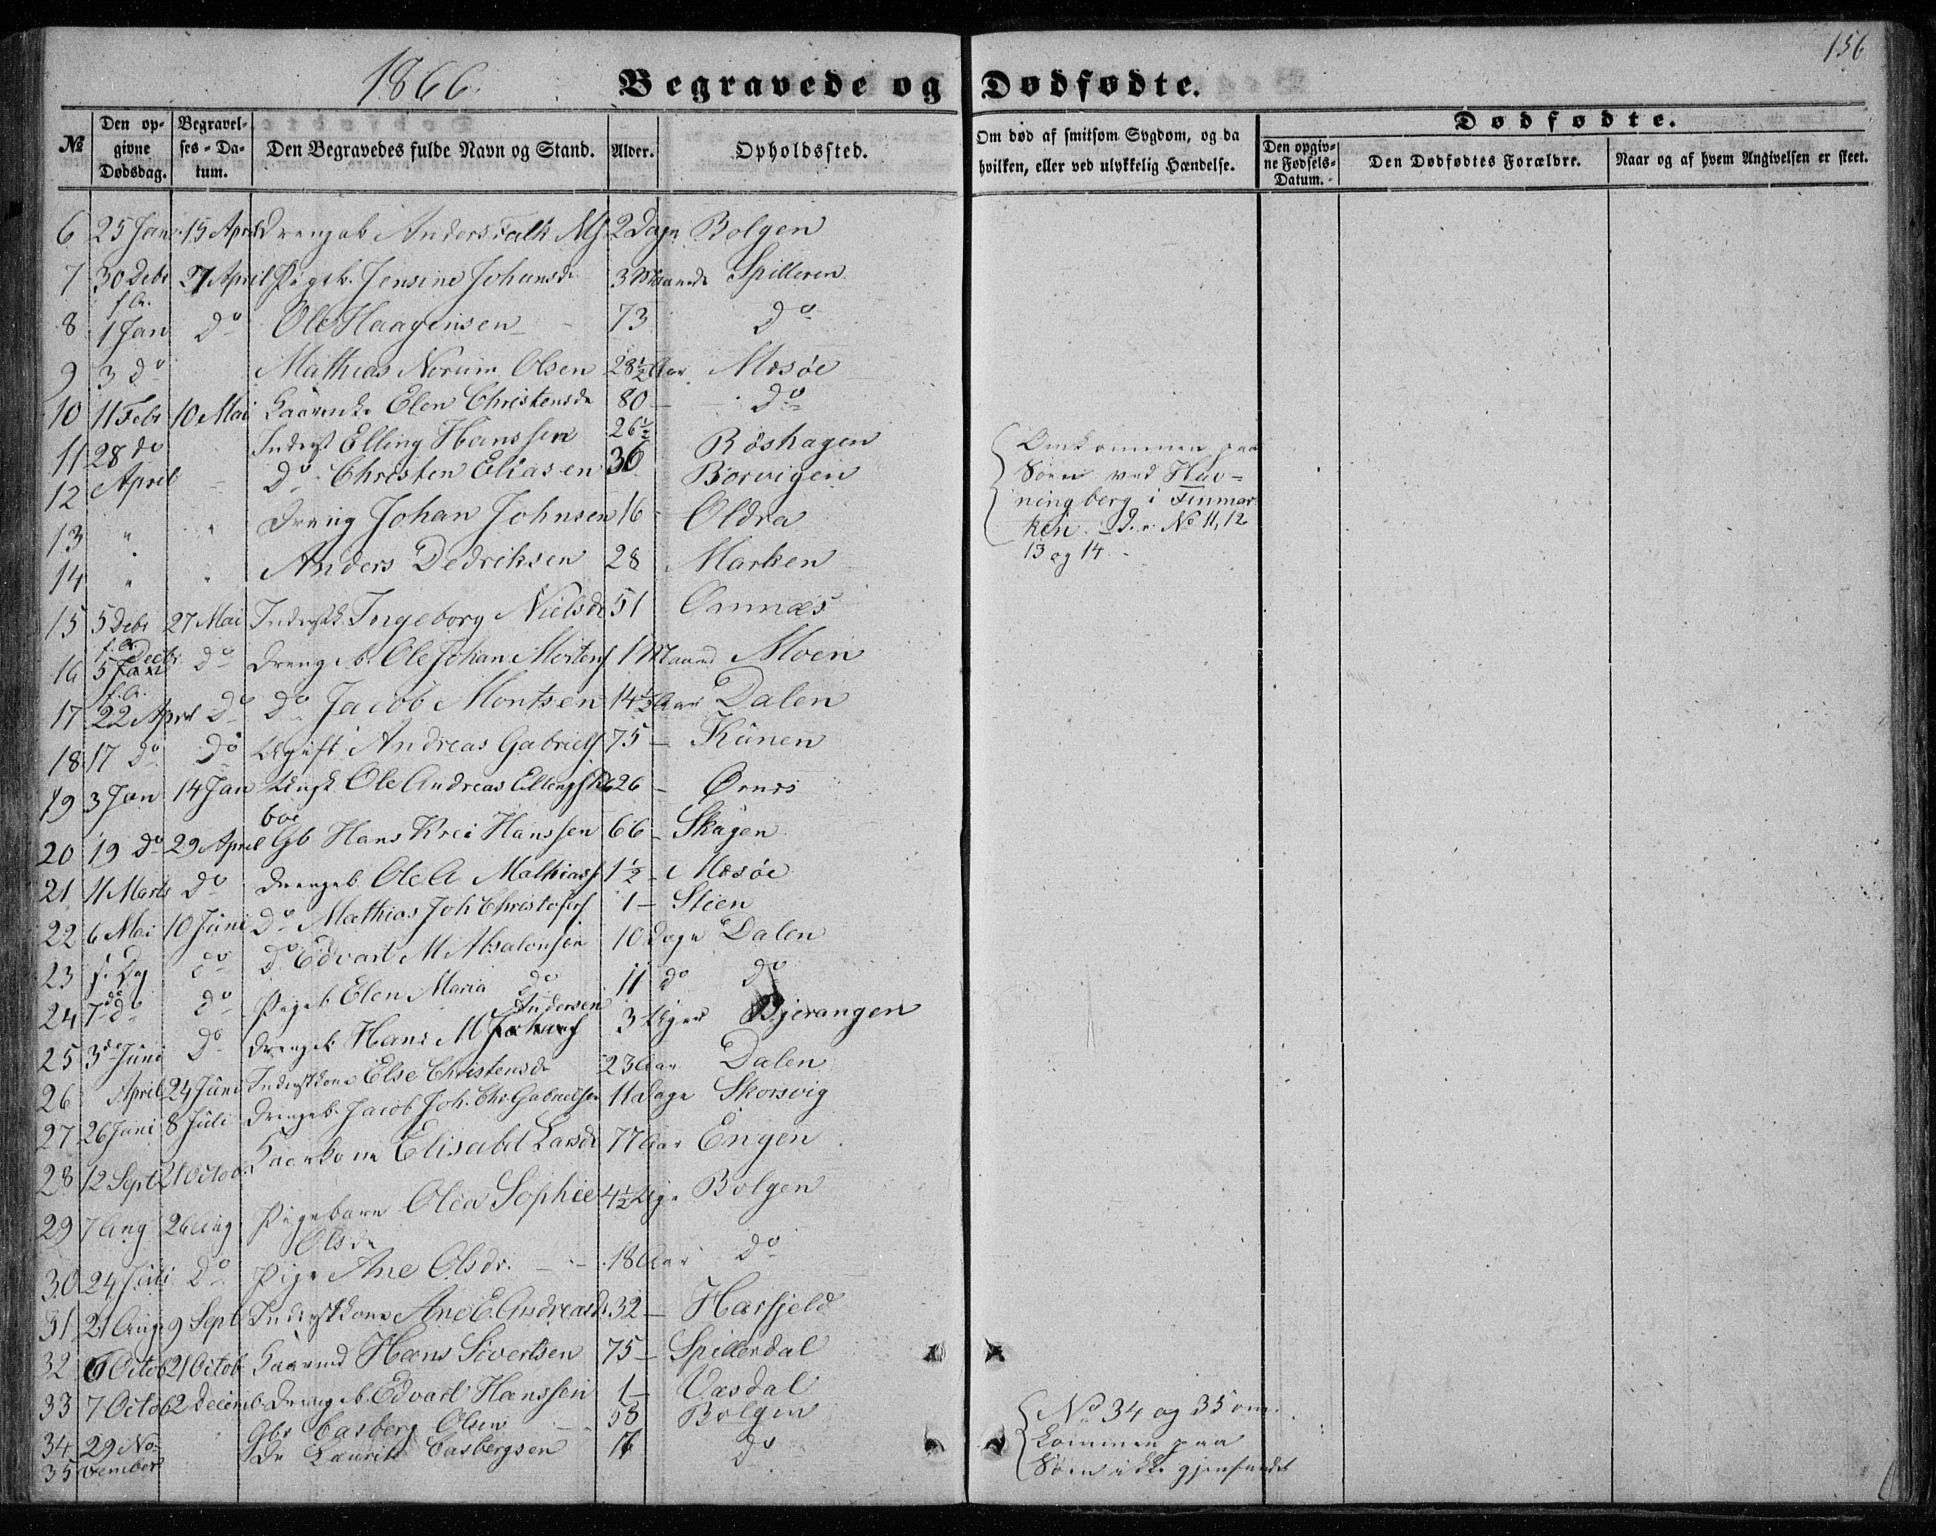 156
1866.
Begravede og Dødfødte.
№
Den opgivne Dødsdag.
Begravelses-Datum.
Den Begravedes fulde Navn og Stand.
Alder.
Opholdssted.
Om død af smitsom Sygdom, og da hvilken, eller ved ulykkelig Hændelse.
Dødfødte.
Den opgivne Fødsels-Datum.
Den Dødfødtes Forældre.
Naar og af hvem Angivelsen er skeet.
6 25 Jan 15 April Drengeb Anders Falk 2 Dage Bolgen
7 30 Debr f. A. 27 April Pigeb. Jensine Johansdr 3 Maaneder Spilleren
8 1 Jan Do Ole Haagensen 73 Do
9 3 Do Mathias Norum Olsen 28½ Aar Mesøe
10 11 Febr 10 Mai Elen Christensdr 80 Do
11 28 do Inderst Elling Hanssen 26½ Röshagen
12 April Do Christen Eliasen 36 Borvigen
13 " " Dreng Johan Johnsen 16 Oldra
14 " " Anders Dedriksen 28 Marken
Omkommen paa
Søen ved Hav-
ningberg i Finmar
ken. No 11, 12
13 og 14
15 5 Debr f. A. 27 Mai Ingeborg Nielsdr 51 Ornnæs
16 5 Decbr f. A. Do Drengeb. Ole Johan Mortens 1 Maaned Moen
17 22 April Do Do Jacob Montsen 14½ Aar Dalen
18 17 Do Do Ugift Andreas Gabriels 75 Kunen
19 3 Jan 14 Jan Ungk Ole Andreas Ellings 26 Ørnes
20 19 Do 29 April Gb Hans Krei Hanssen 66 Skagen
21 11 Marts Do Drengeb. Ole A Mathiass 1½ Mesøe
22 6 Mai 10 Juni Do Mathias Joh Christofers 1 Stien
23 f. Dag do Do Edvart M Absalonsen 10 Dage Dalen
24 7de do Do Pigeb Elen Maria do 11 do Do
25 3de Juni Do Drengeb Hans M Andersen 3 Uger Bjerangen
26 April 24 Juni Inderstkone Else Christensdr 23 Aar Dalen
27 26 Juni 8 Juli Drengeb. Jacob Joh. Chr Gabrielsen 11 Dage Skorsvig
28 12 Sept 21 Octob. Kaarkone Elisabet Larsdr 77 Aar Engen
29 7 Aug 26 Aug Pigebarn Olea Sophie Olsdr 4½ Uge Bolgen
30 24 Juli Do Pige Ane Olsdr. 18 Aar Do
31 21 Aug 9 Sept Inderstkone Ane E. Andreasdr 32 Harfjeld
32 6 Octob 21 Octob Kaarmd Hans Sivertsen 75 Spillerdal
33 7 Octob 2 Decemb Drengeb. Edvart Hanssen 1 Vasdal
34 29 No- Gbr Casberg Olsen 58 Bolgen
35 vember Lauritz Casbergsen Do
No 34 og 35 om-
kommen paa
Søen ikke gjenfundet